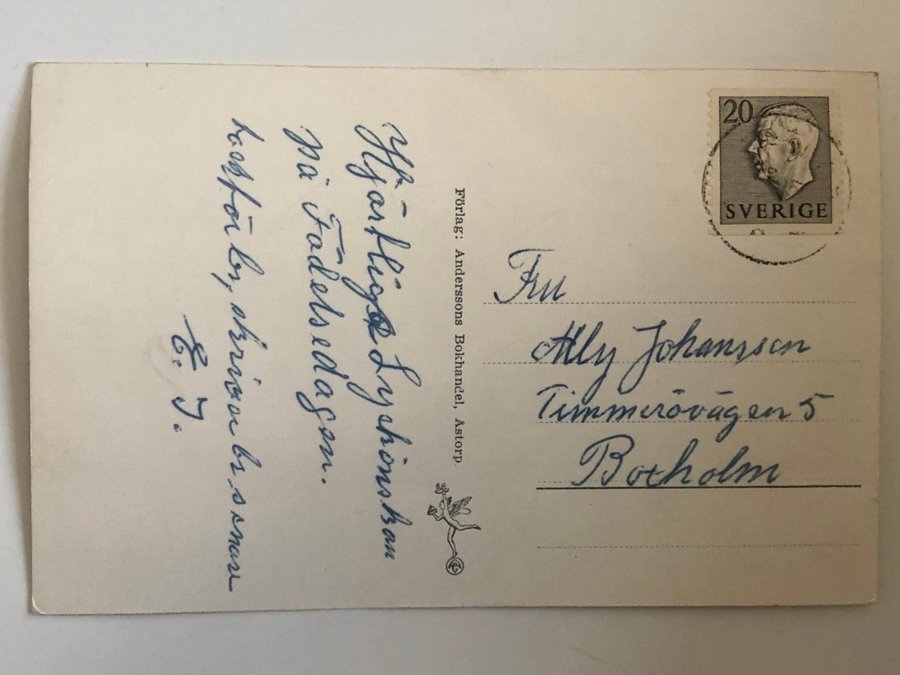 Hjärtliga Lyckönskan
på Födelsedagen.
tack för br, skriver br. senare
E. J.
Förlag: Anderssons Bokhandel, Astorp.
20
SVERIGE
Fru
Ally Johansson
Timmerövägen 5
Boxholm